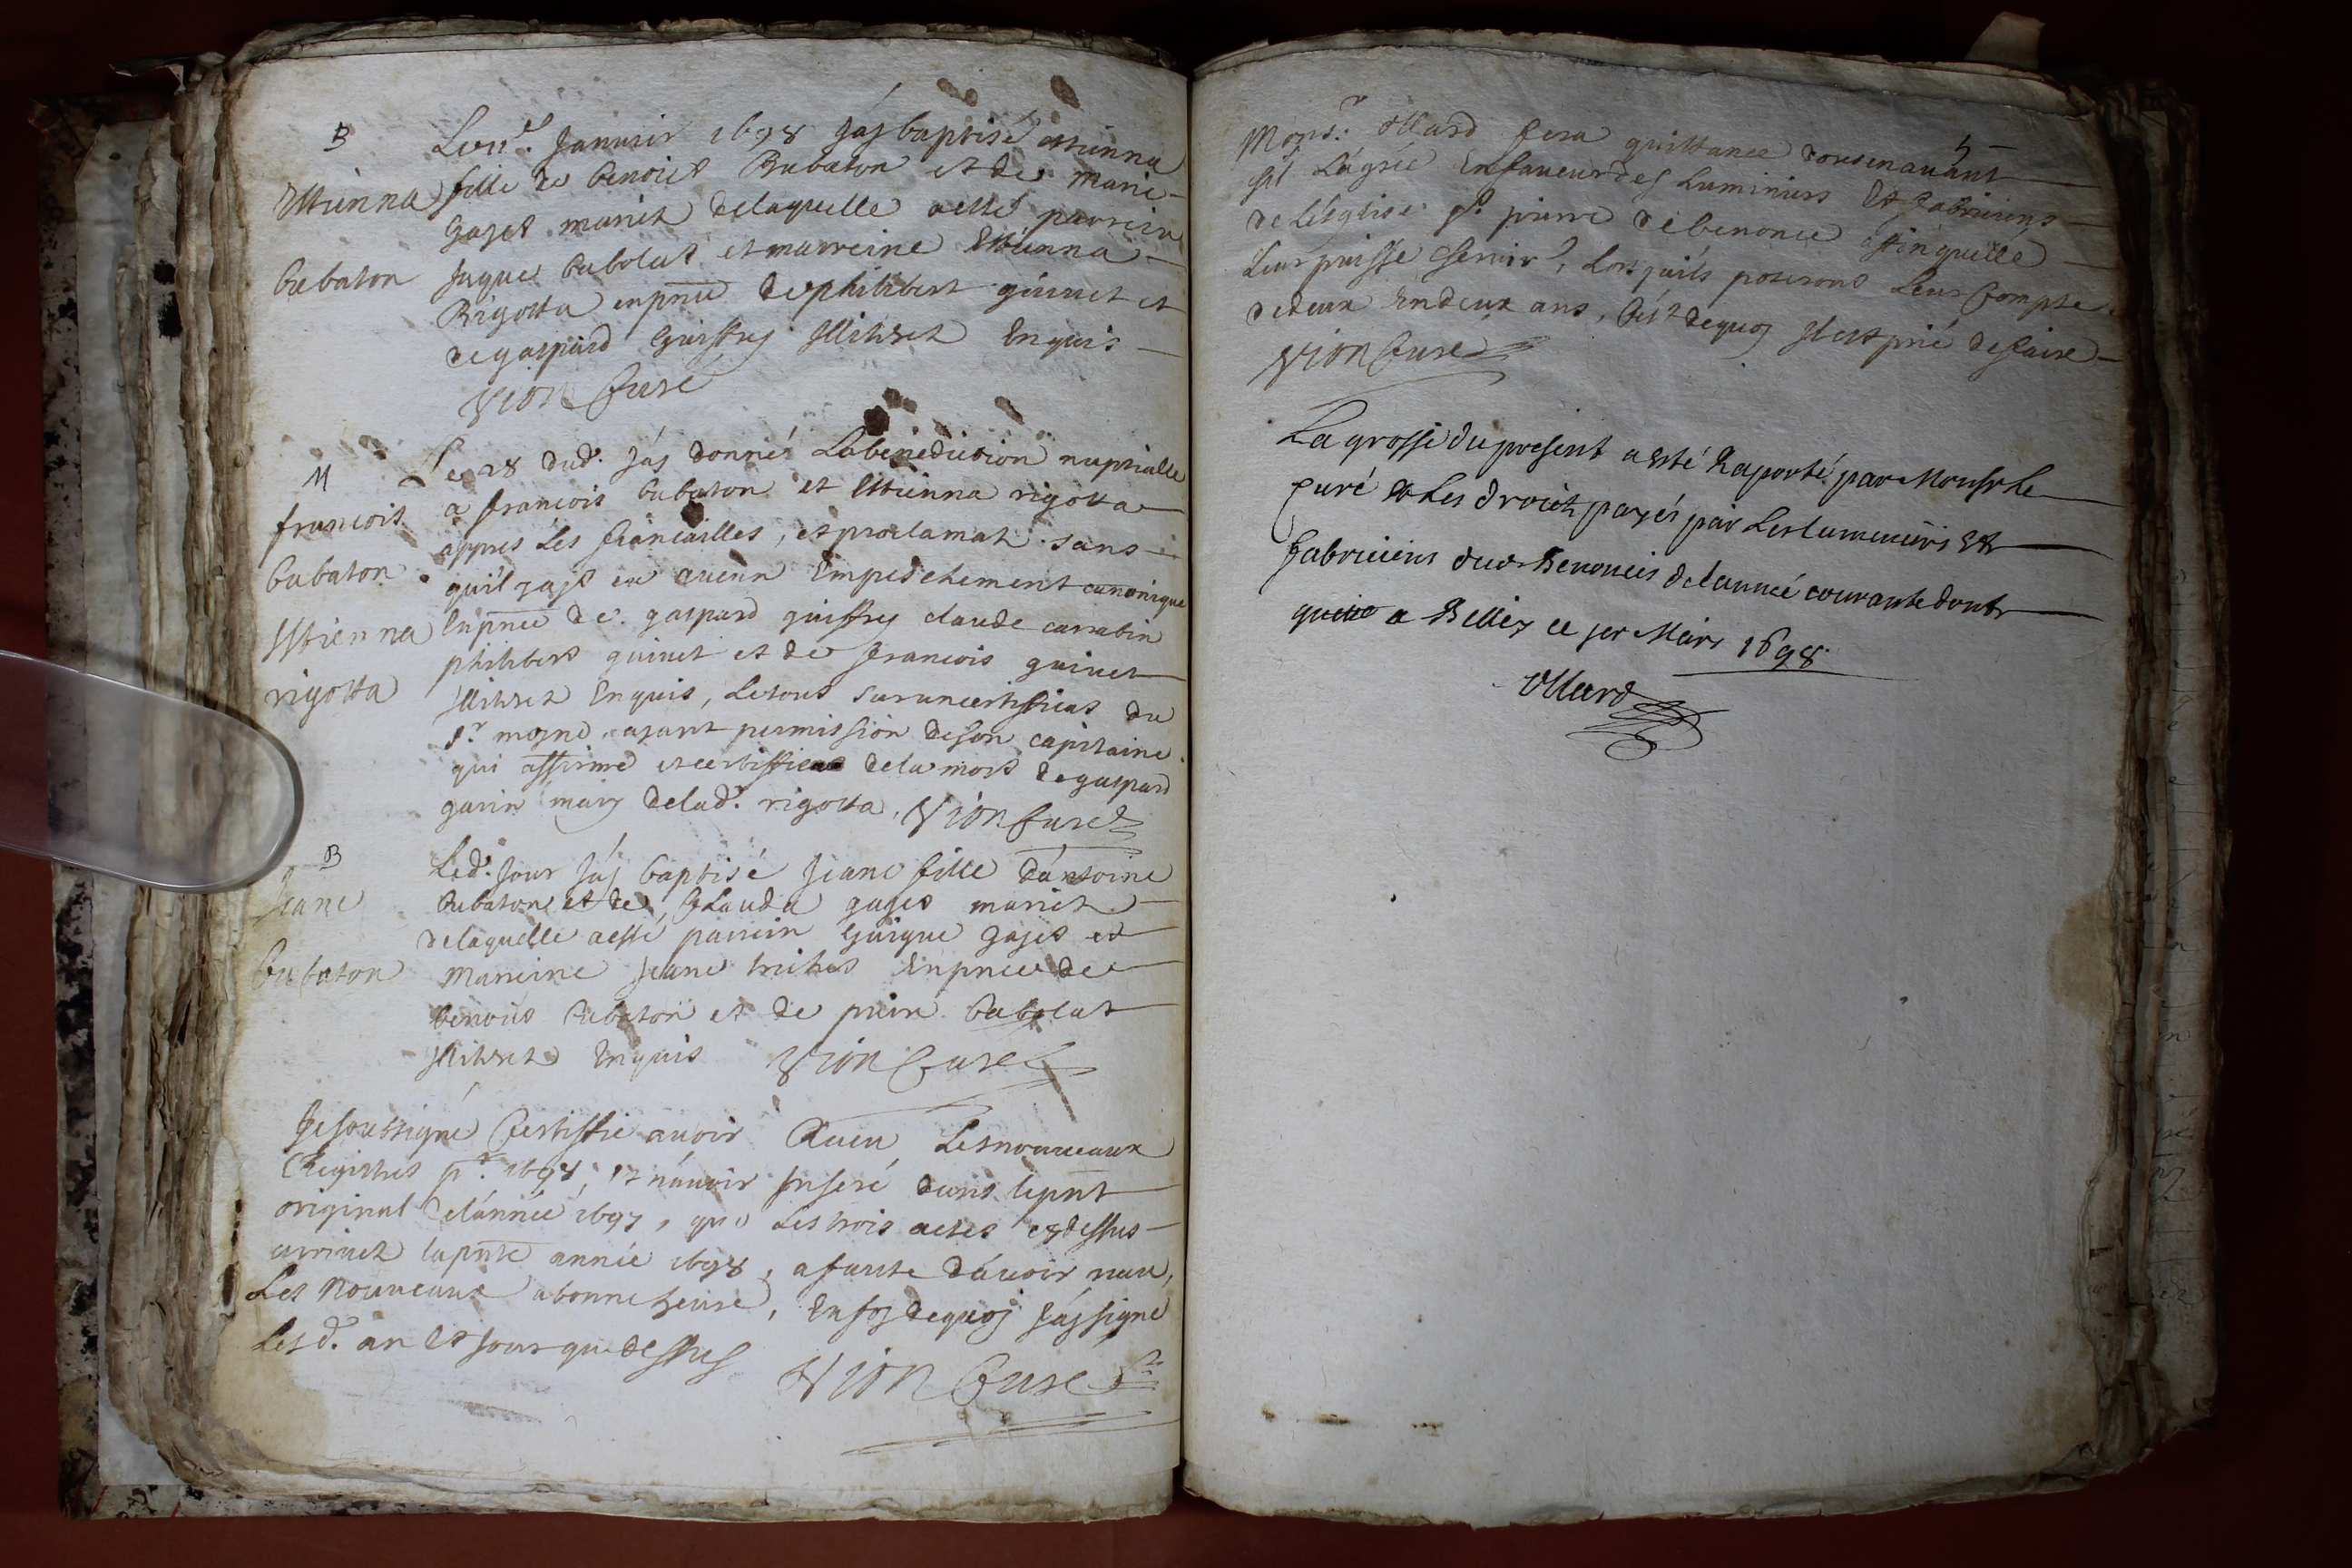 B
Ettienna
Cubaton
Le 11e. Januier 1698 jáy baptisé ettienna
fille de benoict Cubaton et de marie
gajet mariez delaquelle a esté parrein
Jaque Cubolat et marreine Ettienna
Rigotta enpnce de philibert guinet et
de gaspard Guiffrey Illitrez Enquis
Vion Curé
M
francois
Cubaton
Ettienna
rigotta
Le 28 dud. jáy donné Labenediction nuptialle
a francois Cubaton et Ettienna rigotta
appres Les fiancailles, et proclamat. sans
quil yayt eu aucun Empedchement canonique
Enpnce de gaspard guiffrey claude carrabin
philibert guinet et de francois guinet
Illitrez Enquis, Letout sur uncertifficat du
sr. moyne, ayant permission deson capitaine
qui affirme et certifficat dela mort de gaspard
garin mary delad. rigotta. Vion Curé
B
Jeane
Cubaton
Led. Jour jáy baptisé Jeane fille dántoine
Cubaton et de Clauda gajet mariez
delaquelle aesté parrein Guigue gajet et
Mareine Jeane Enpnce de
benoict Cubaton et de pierre Cubolat
Illitrez Enquis Vion Curé
Jesoubsigné Certiffie auoir Receu Lesnouueaux
Registres pr. 1698, et náuoir Inseré dans lepnt
original delánnée 1697, que Lestrois actes cydessus
arriuez lapnte année 1698, afaute dáuoir receu
Les nouueaux abonneheure, Enfoy dequoj jáysigné
Lesd. an et Jour que dessus
Vion Curé
Monsr. Ollard fera quittance doresenauant
sil Lágrée Enfaueur des Luminiers Et fabriciens
de Léglise St. pierre de benonce affinquelle
Leur puisse seruir, Lors quils poseront Leur Compte
dedeux Endeux ans, Cést dequoy Ilest prié defaire
Vion Curé
La grosse du present a esté Raporté par Monsr Le
Curé et Les droicts payés par Les lumeniers Et
fabriciens dud. Benonces delannée courante dont
quitte a Belley ce jer Mars 1698
Ollard